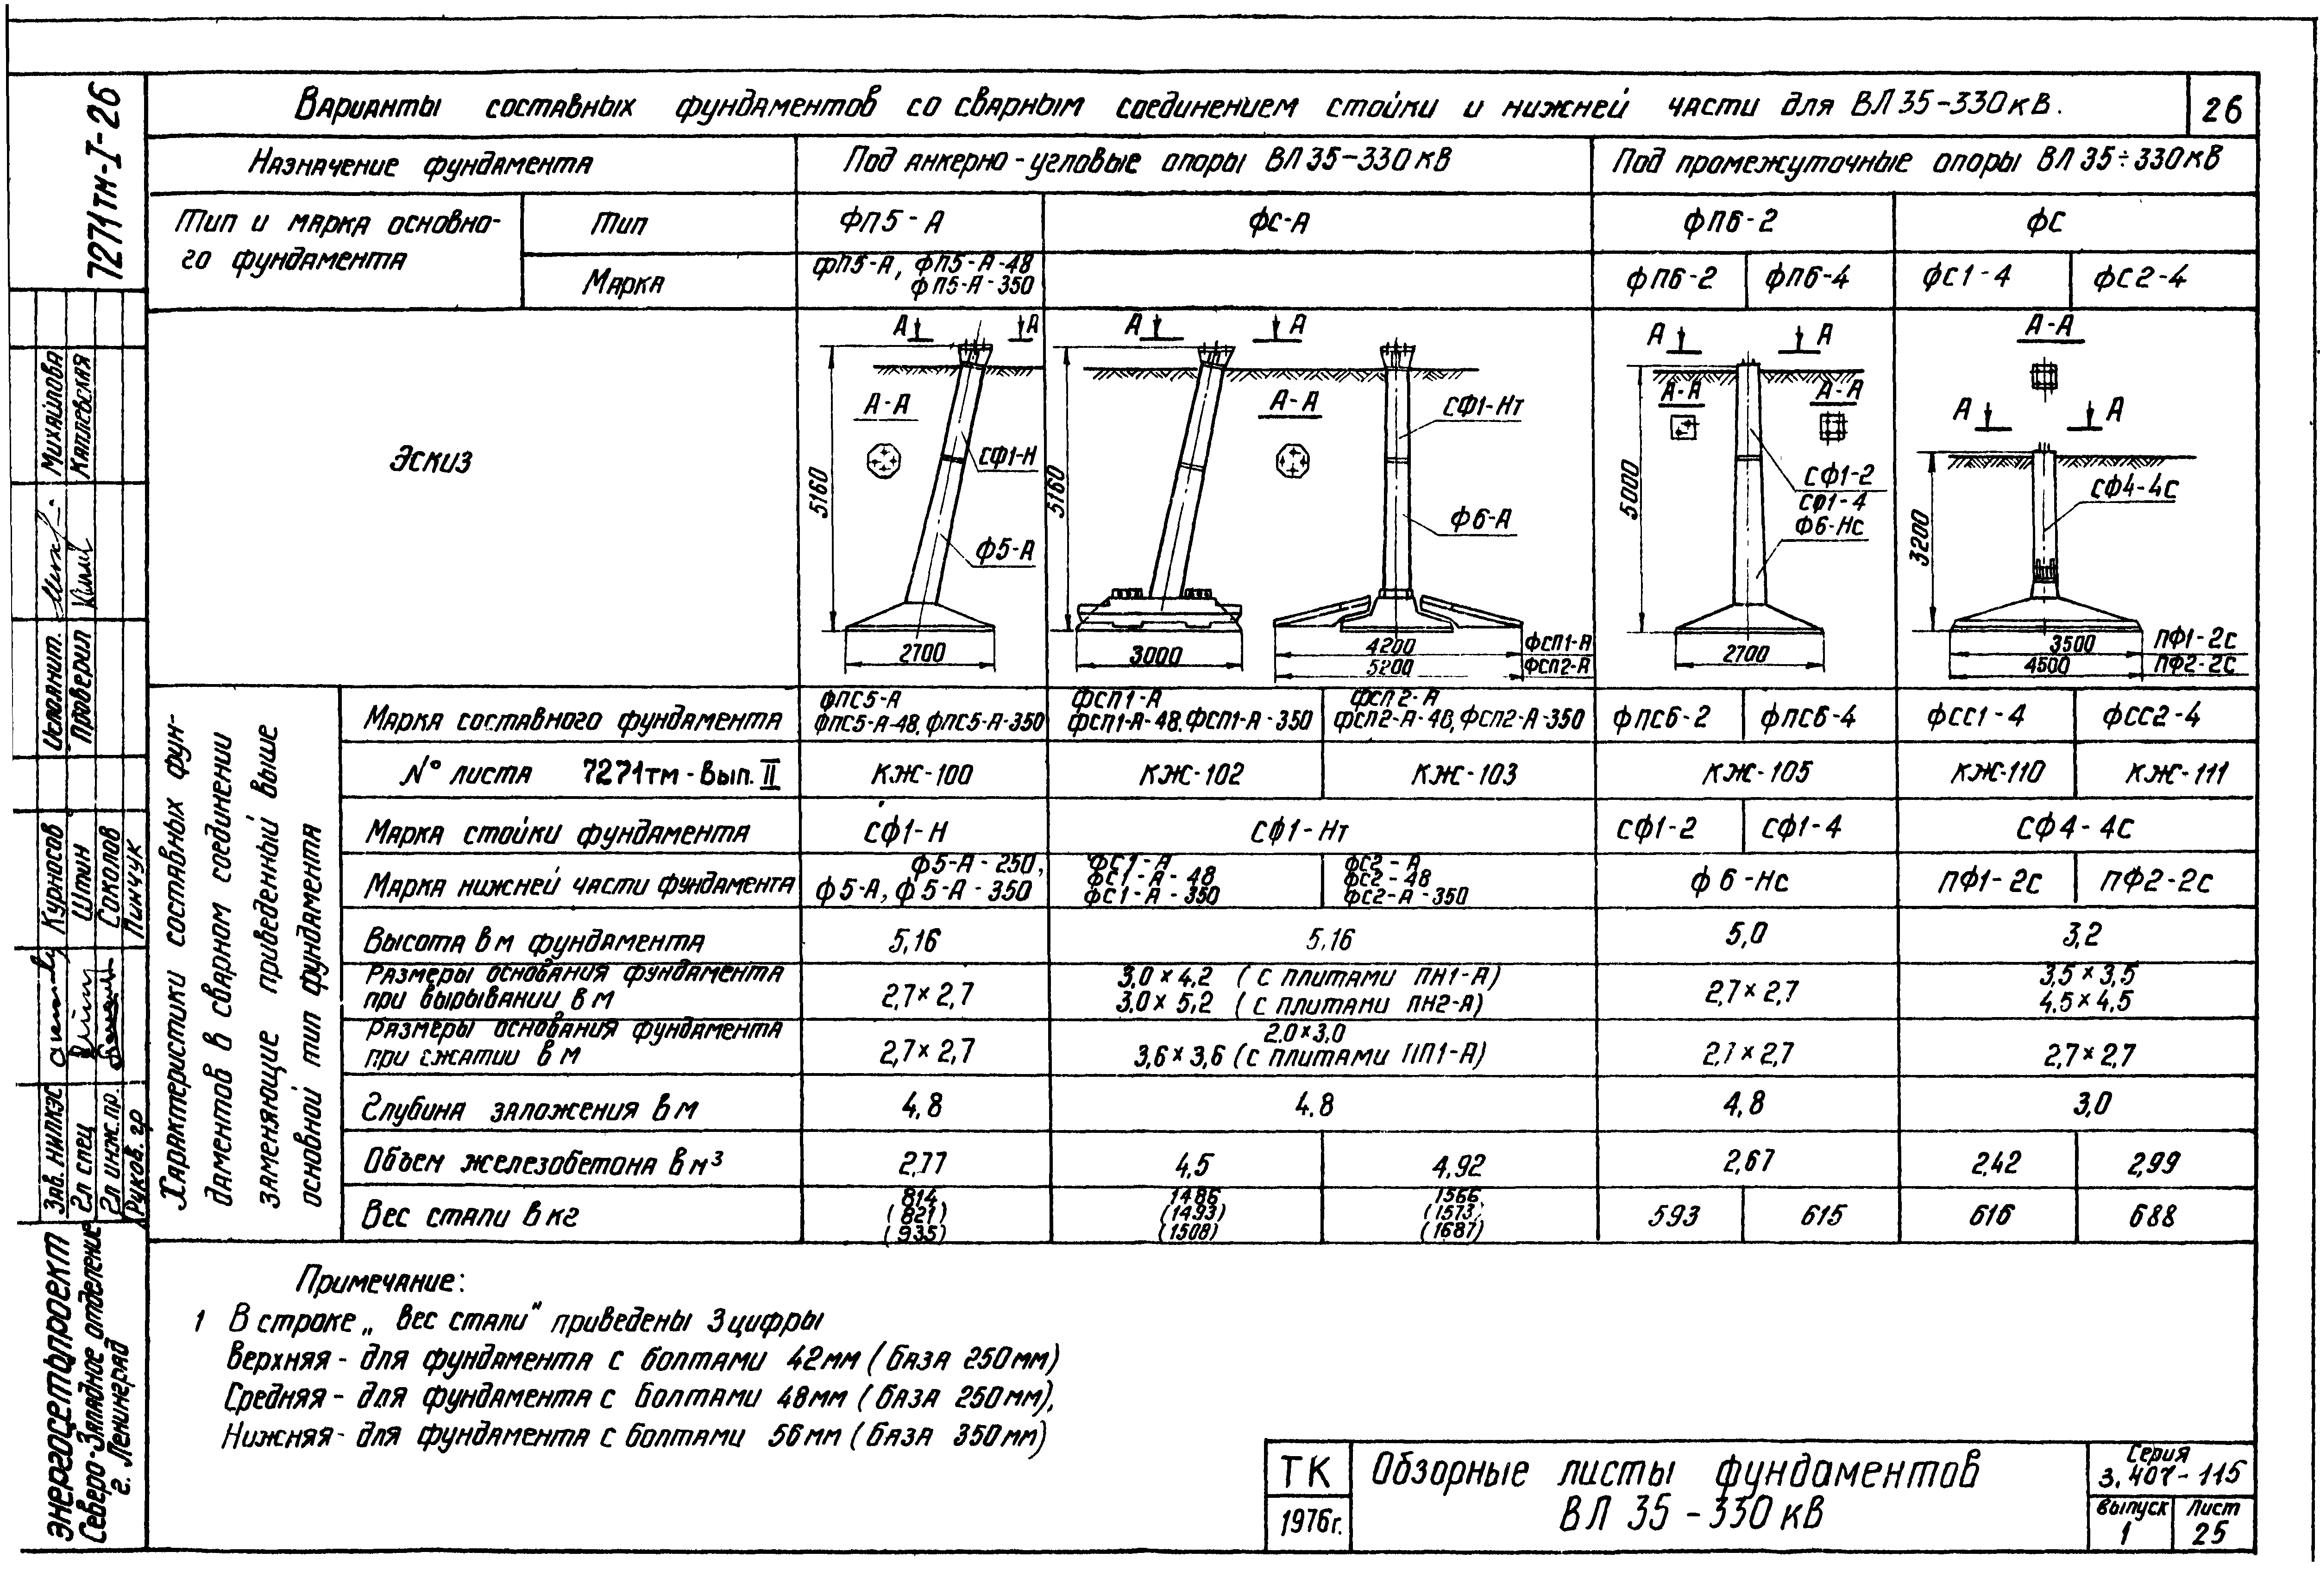 Варианты составных фундаментов со сварным соединением стойки и нижней части для ВЛ 35-330кВ.
26
7271тм-I-26
Назначение фундамента
Под анкерно-угловые опоры ВЛ 35-330кВ
Под промежуточные опоры ВЛ 35÷330кВ
Тип и марка основно-
го фундамента
Тип
ФП5-А
ФС-А
ФП6-2
ФС
Марка
ФП5-А, ФП5-А-48
ФП5-А-350
ФП6-2
ФП6-4
ФС1-4
ФС2-4
Эскиз
А А
А-А
5160
СФ1-Н
Ф5-А
2700
А А
А-А
5160
СФ1-Нт
Ф6-А
3000
4200 ФСП1-А
5200 ФСП2-А
А А
А-А
А-А
5000
СФ1-2
СФ1-4
Ф6-Нс
2700
А-А
А А
3200
СФ4-4с
3500 ПФ1-2с
4500 ПФ2-2с
Характеристики составных фун-
даментов в сварном соединении
заменяющие приведенный выше
основной тип фундамента
Марка составного фундамента
ФПС5-А
ФПС5-А-48, ФПС5-А-350
ФСП1-А
ФСП1-А-48, ФСП1-А-350
ФСП2-А
ФСП2-А-48, ФСП2-А-350
ФПС6-2
ФПС6-4
ФСС1-4
ФСС2-4
№ листа 7271тм-Вып. II
КЖ-100
КЖ-102
КЖ-103
КЖ-105
КЖ-110
КЖ-111
Марка стойки фундамента
СФ1-Н
СФ1-Нт
СФ1-2
СФ1-4
СФ4-4С
Марка нижней части фундамента
Ф5-А-250,
Ф5-А, Ф5-А-350
ФС1-А
ФС1-А-48
ФС1-А-350
ФС2-А
ФС2-48
ФС2-А-350
Ф6-Нс
ПФ1-2с
ПФ2-2с
Высота в м фундамента
5,16
5,16
5,0
3,2
Размеры основания фундамента
при вырывании в м
2,7×2,7
3,0×4,2 (с плитами ПН1-А)
3,0×5,2 (с плитами ПН2-А)
2,7×2,7
3,5×3,5
4,5×4,5
Размеры основания фундамента
при сжатии в м
2,7×2,7
2,0×3,0
3,6×3,6 (с плитами ПП1-А)
2,7×2,7
2,7×2,7
Глубина заложения в м
4,8
4,8
4,8
3,0
Объем железобетона в м³
2,77
4,5
4,92
2,67
2,42
2,99
Вес стали в кг
814
(821)
(935)
1486
(1493)
(1508)
1566
(1573)
(1687)
593
615
616
688
Примечание:
1 В строке „Вес стали" приведены 3 цифры
Верхняя - для фундамента с болтами 42мм (база 250мм)
Средняя - для фундамента с болтами 48мм (база 250мм),
Нижняя - для фундамента с болтами 56мм (база 350мм)
ТК
1976г.
Обзорные листы фундаментов
ВЛ 35-330кВ
Серия
3.407-115
Выпуск
1
Лист
25
Энергосетьпроект
Северо-Западное отделение
г. Ленинград
Зав. НИЛКЭС Курносов
Гл спец Штин
Гл инж.пр. Соколов
Руков. гр Пинчук
Исполнит. Михайлова
Проверил Каплевская